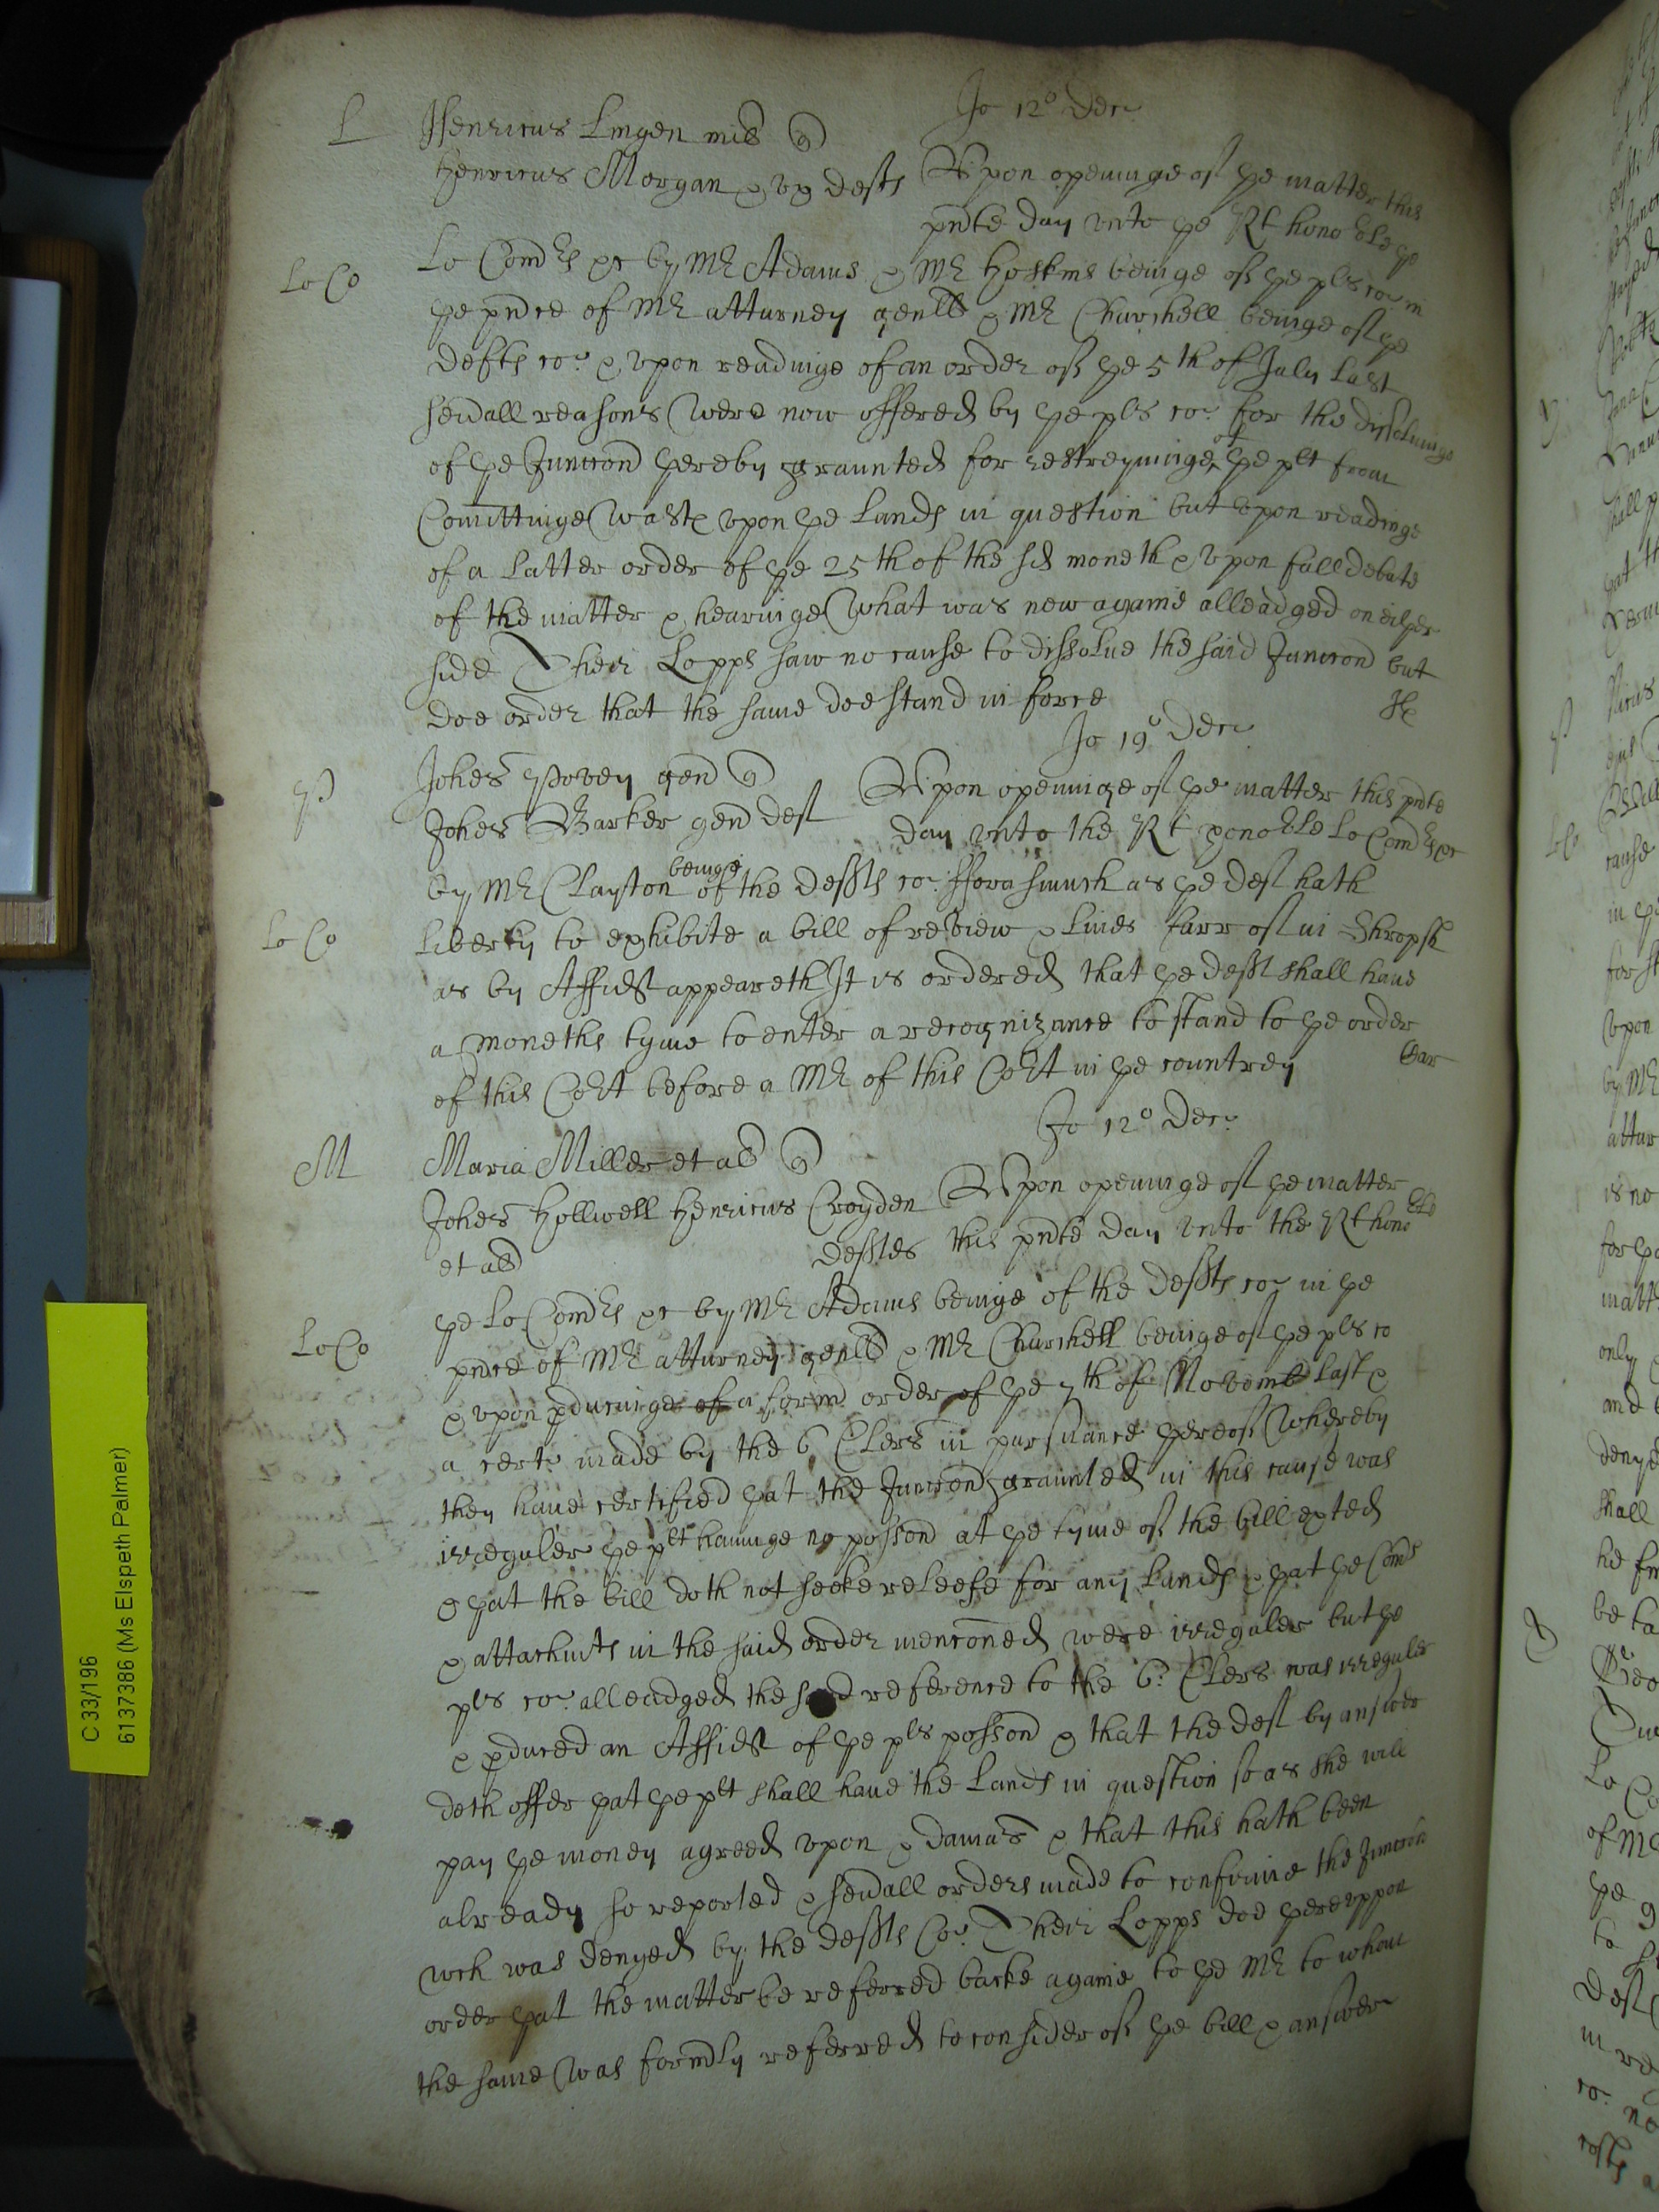 Jo 12° Decr
L Henricus Lingen mil q
Henricus Morgan & ux defts Upon openinge of ye matter this
pnte day unto ye Rt honoble ye
Lo Co Lo Comrs &c by Mr Adams & Mr Hoskins beinge of ye pls co: in
ye pnce of Mr atturney genll & Mr Churchell beinge of ye
defts co: & upon readinge of an order of ye 5th of July last
sevall reasons were now offered by ye pls co: for the dissolvinge
of ye Junccon hereby graunted for restreyninge of ye plt from
Comittinge wast upon ye Lands in question but upon readinge
of a latter order of ye 25th of the sd moneth & upon full debate
of the matter & hearinge what was now againe alleadged on eiyer
side Their Lopps saw no cause to dissolve the said Junccon but
doe order that the same doe stand in force
Jo 19° Decr
P Johes Povey gen q
Johes Barker gen def Upon openinge of ye matter this pnte
day unto the Rt honoble Lo Comrs &c
by Mr Clayton beinge of the defts co: fforasmuch as ye def hath
Lo Co liberty to exhibite a bill of review & lives farr of in Shropsh
as by Affidt appeareth It is ordered that ye deft shall have
a moneths tyme to enter a recognizance to stand to ye order
of this Cort before a Mr of this Cort in ye countrey
Jo 12° Decr
M Maria Miller et al q
Johes Hollwell Henricus Croyden Upon openinge of ye matter
et al deftes this pnte day unto the Rt honoble
ye Lo Comrs &c by Mr Adams beinge of the defts co: in ye
Lo Co pnce of Mr atturney genll & Mr Churchell beinge of ye pls co
& upon pducinge of a formr order of ye 7th of Novembr last &
a certe made by the 6 Clers in pursuance yereof whereby
they have certified yat the Junccon graunted in this cause was
irreguler ye plt havinge no possion at ye tyme of the bill exted
& yat the bill doth not seeke releefe for any Lands & yat ye Coms
& attachmts in the said order menconed were irreguler but ye
pls co: alleadged the said reference to the 6: Clers was irreguler
& pduced an Affidt of ye pls possion & that the def by answer
doth offer yat ye plt shall have the Lands in question so as she will
pay ye money agreed upon & damas & that this hath been
already so reported & sevall orders made to confirme the Junccon
wch was denyed by the defts Co: Their Lopps doe yereuppon
order yat the matter be referred backe againe to ye Mr to whom
the same was formrly referred to consider of ye bill & answer
C 33/196
6137386 (Ms Elspeth Palmer)